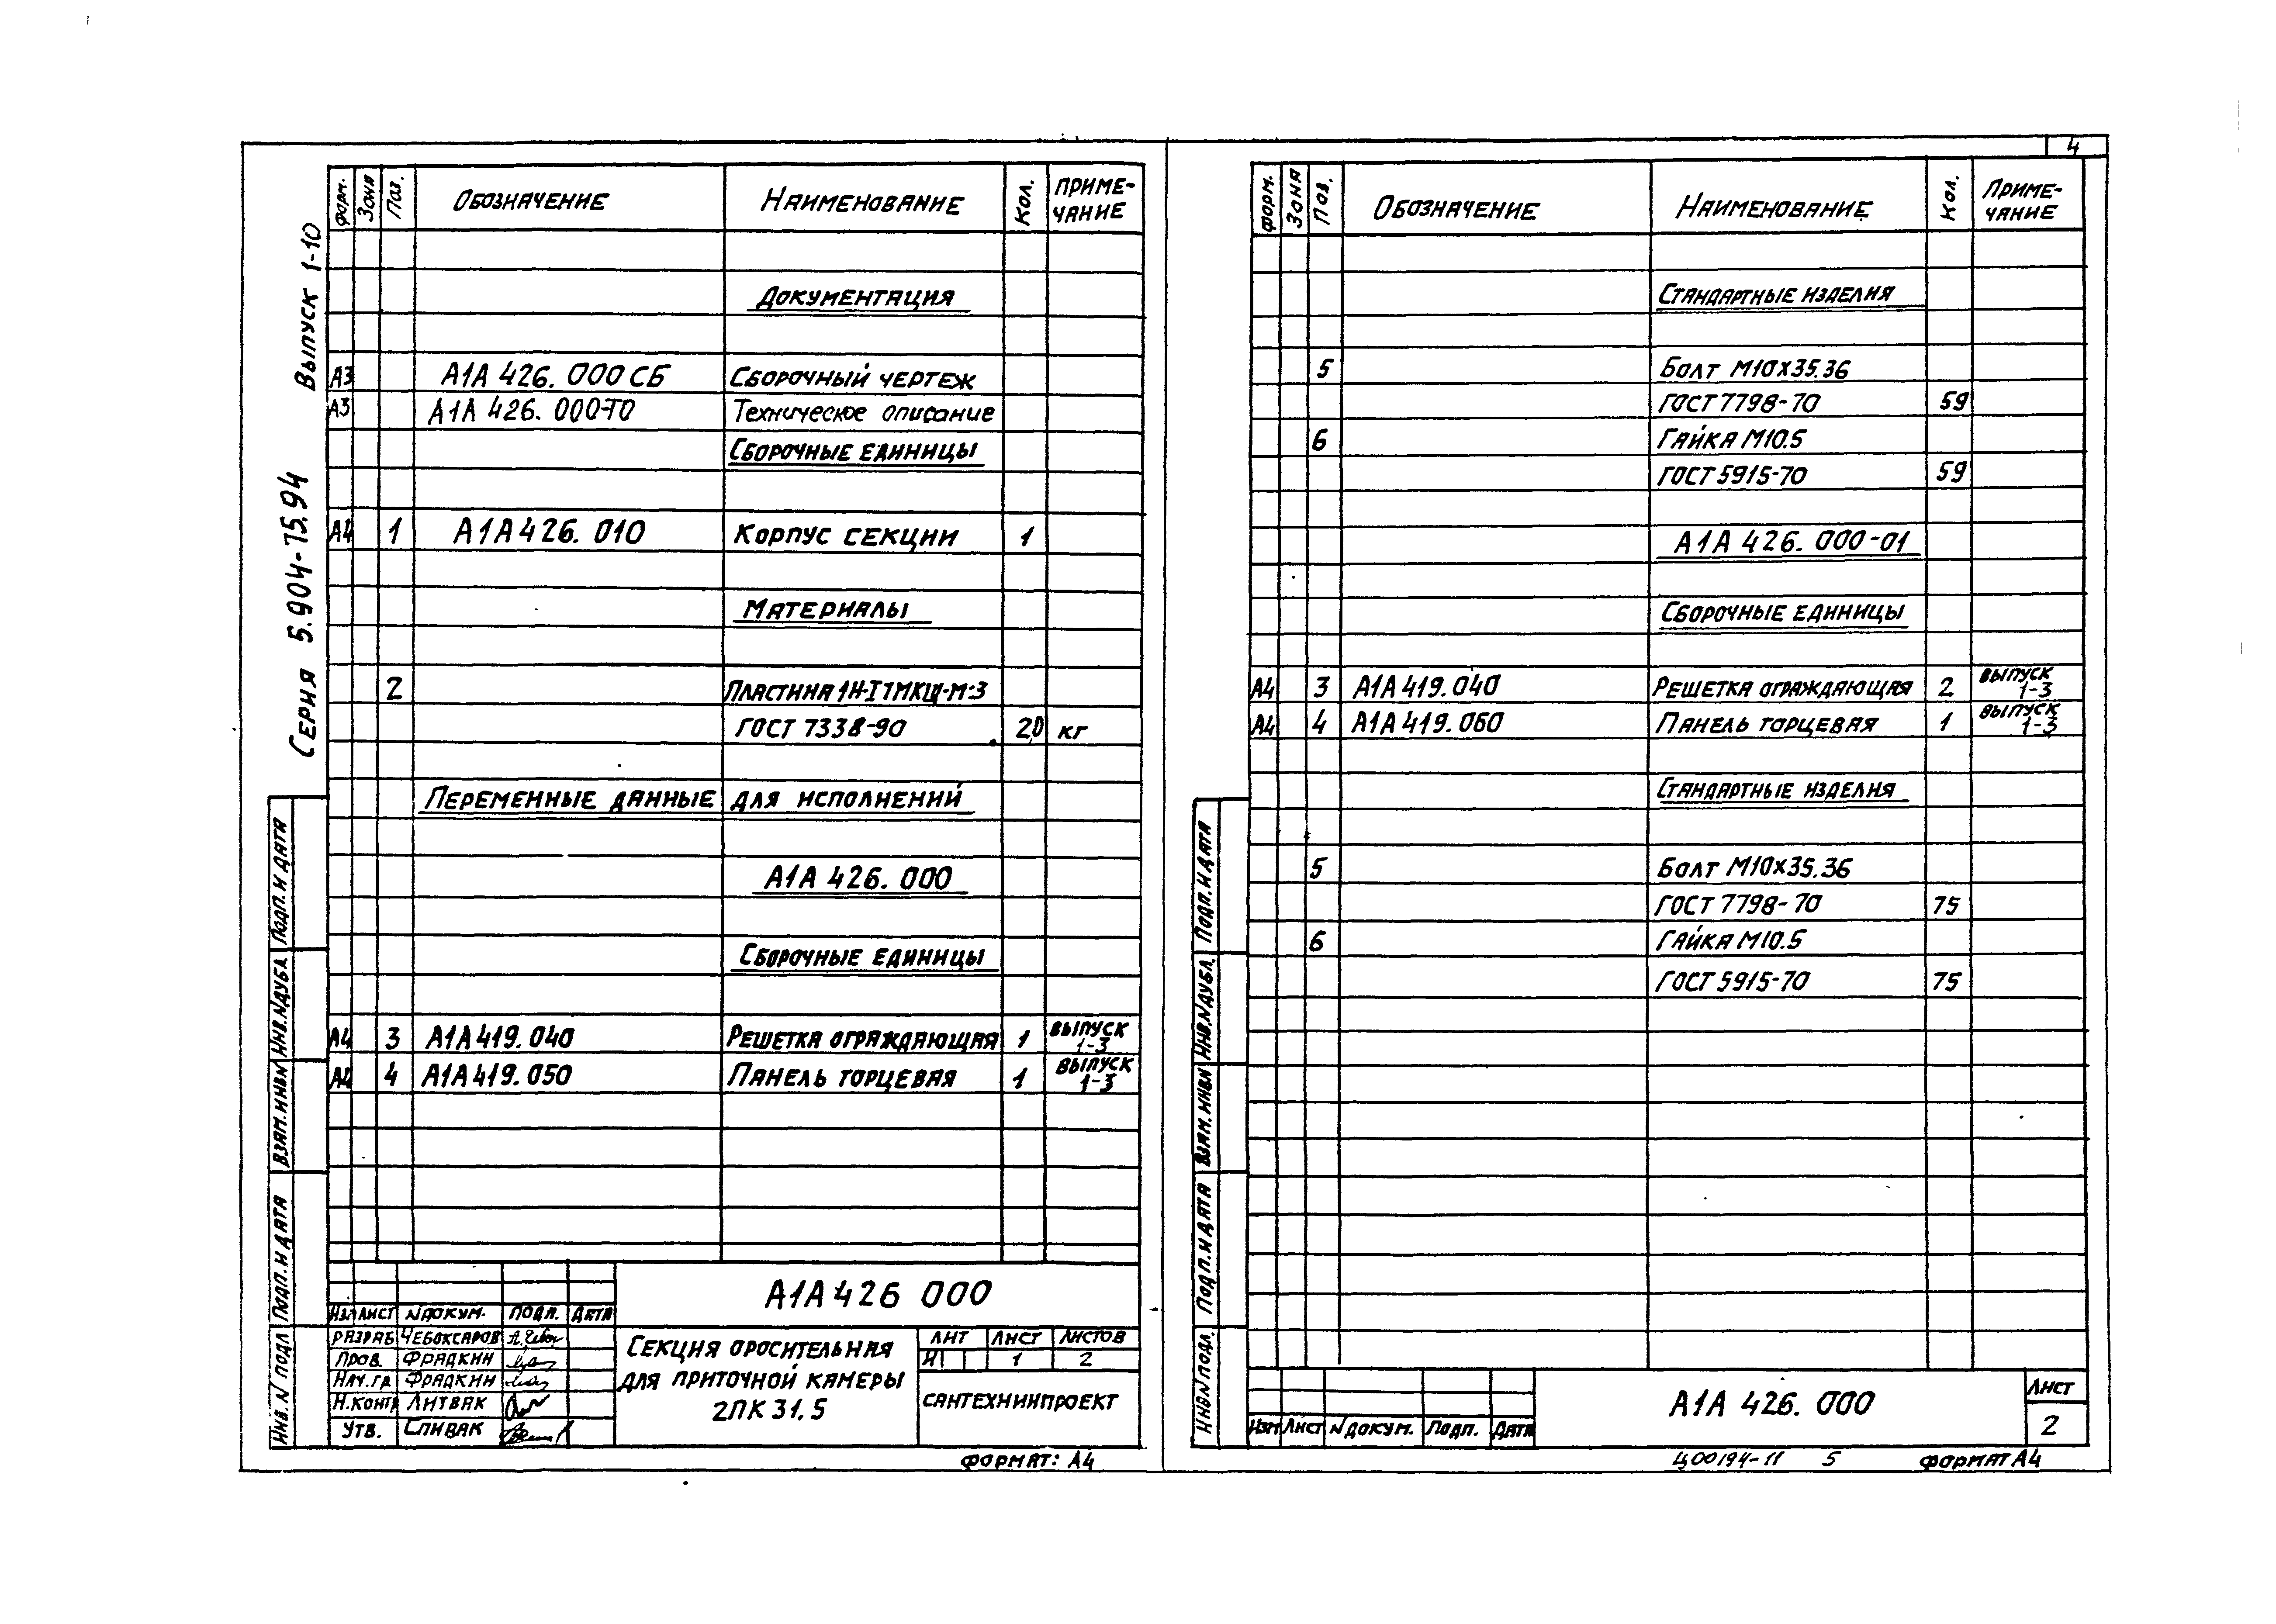 4
Серия 5.904-75.94 Выпуск 1-10
Форм. Зона Поз. Обозначение Наименование Кол. Приме-
чание
Документация
А3 А1А 426. 000 СБ Сборочный чертеж
А3 А1А 426. 000ТО Техническое описание
Сборочные единицы
А4 1 А1А 426. 010 Корпус секции 1
Материалы
2 Пластина 1Н-I ТМКЩ-М-3
ГОСТ 7338-90 2,0 кг
Переменные данные для исполнений
А1А 426. 000
Сборочные единицы
А4 3 А1А 419. 040 Решетка ограждающая 1 выпуск
1-3
А4 4 А1А 419. 050 Панель торцевая 1 выпуск
1-3
Инв. N подл Подп. и дата Взам. инв N Инв. N дубл. Подп. и дата
А1А 426 000
Изм Лист N докум. Подп. Дата
Разраб Чебоксаров
Пров. Фрадкин
Нач. гр. Фрадкин
Н.контр Литвак
Утв. Спивак
Секция оросительная
для приточной камеры
2ПК 31,5
Лит Лист Листов
И 1 2
Сантехниипроект
Формат: А4
Форм. Зона Поз. Обозначение Наименование Кол. Приме-
чание
Стандартные изделия
5 Болт М10х35.36
ГОСТ 7798-70 59
6 Гайка М10.5
ГОСТ 5915-70 59
А1А 426. 000-01
Сборочные единицы
А4 3 А1А 419. 040 Решетка ограждающая 2 выпуск
1-3
А4 4 А1А 419. 060 Панель торцевая 1 выпуск
1-3
Стандартные изделия
5 Болт М10х35.36
ГОСТ 7798-70 75
6 Гайка М10.5
ГОСТ 5915-70 75
Инв N подл. Подп. и дата Взам. инв N Инв. N дубл. Подп. и дата
Изм Лист N докум. Подп. Дата
А1А 426. 000
Лист
2
Ц00194-11 5 Формат А4